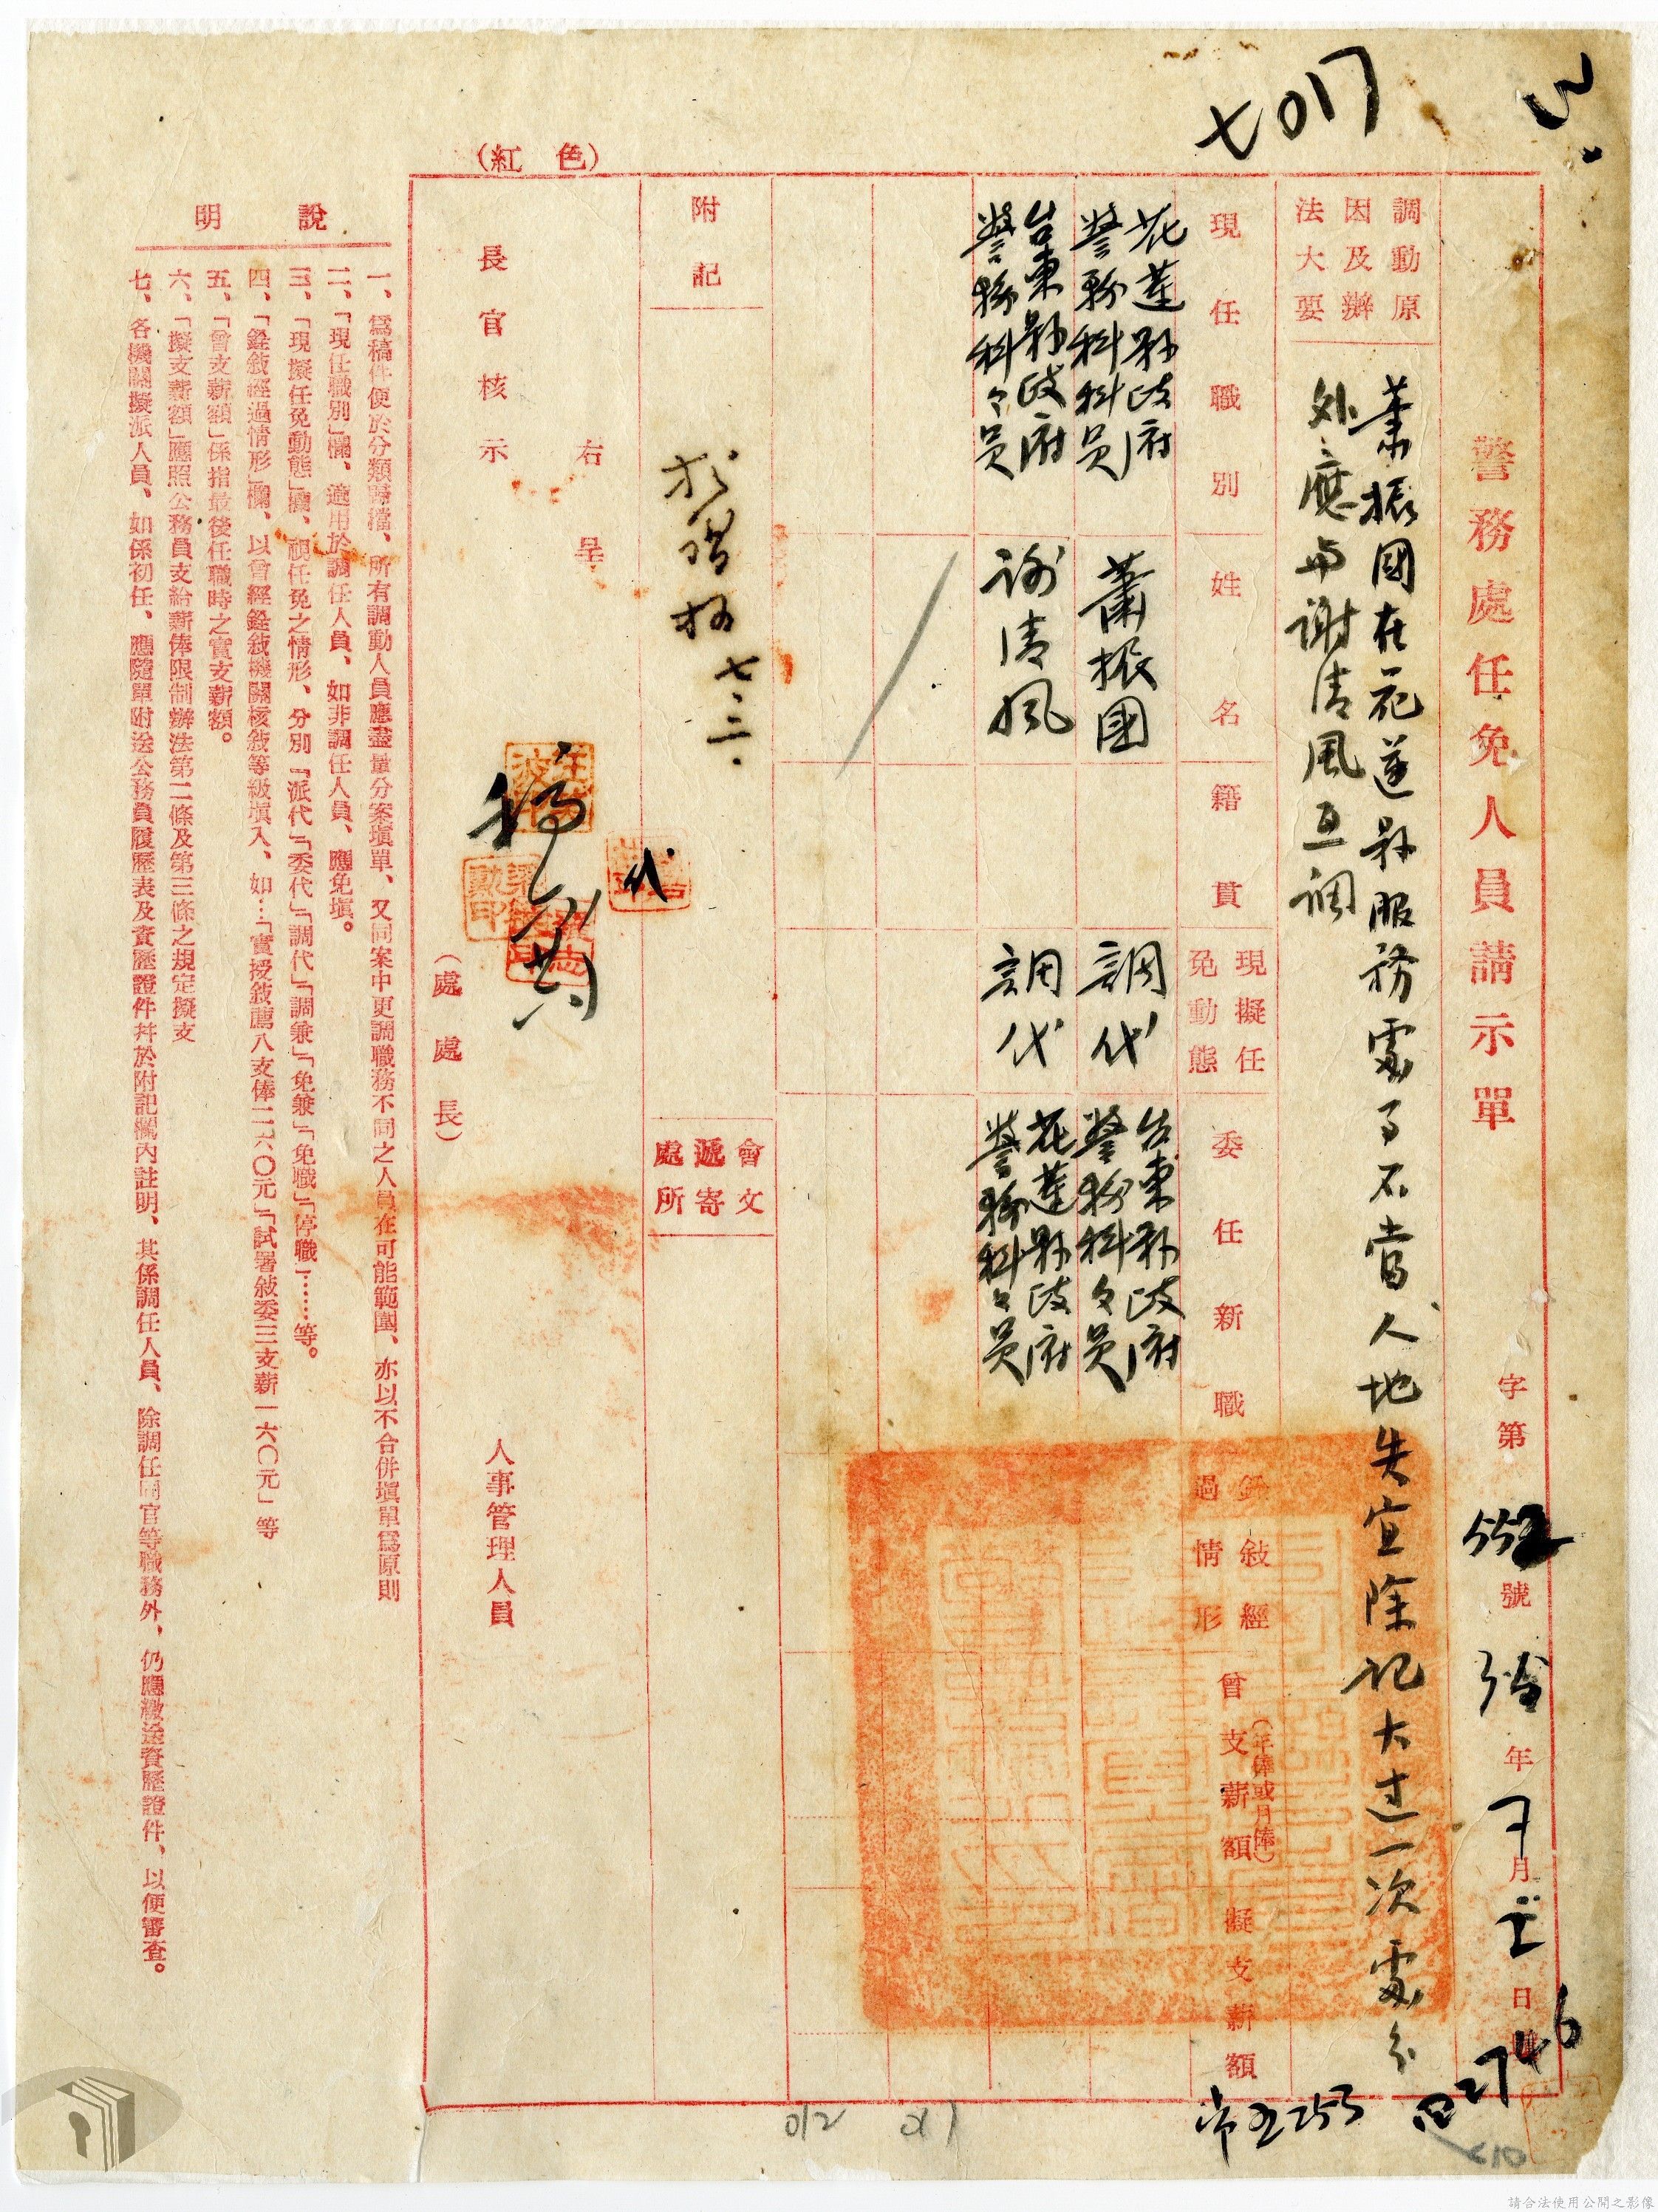 七〇17
警務處任免人員請示單
字第552號
年 月 日
調動原因及辦法大要
蕭振國在花蓮縣服務處事不當人地失宜除記大过一次處分
外應与謝清風互調
現任職別
姓名
籍貫
現擬任免動態
委任新職
銓敍經過情形
曾支薪額(年俸或月俸)
擬支薪額
花蓮縣政府
警務科科員
蕭振國
調代
台東縣政府
警務科々員
台東縣政府
警務科々員
謝清風
調代
花蓮縣政府
警務科々員
附記
七、三、
會文遞寄處所
右呈
代
長官核示
人事管理人員
(處處長)
(紅色)
說明
一、爲稿件便於分類歸檔、所有調動人員應盡量分案填單、又同案中更調職務不同之人員在可能範圍、亦以不合併填單爲原則
二、「現任職別」欄、適用於調任人員、如非調任人員、應免填。
三、「現擬任免動態」欄、視任免之情形、分別「派代」「委代」「調代」「調兼」「免兼」「免職」「停職」……等。
四、「銓敍經過情形」欄、以曾經銓敍機關核敍等級填入、如…「實授敍薦八支俸二六〇元」「試署敍委三支薪一六〇元」等
五、「曾支薪額」係指最後任職時之實支薪額。
六、「擬支薪額」應照公務員支給薪俸限制辦法第二條及第三條之規定擬支
七、各機關擬派人員、如係初任、應隨單附送公務員履歷表及資歷證件幷於附記欄內註明、其係調任人員、除調任同官等職務外、仍應繳送資歷證件、以便審查。
2746
253
012
請合法使用公開之影像